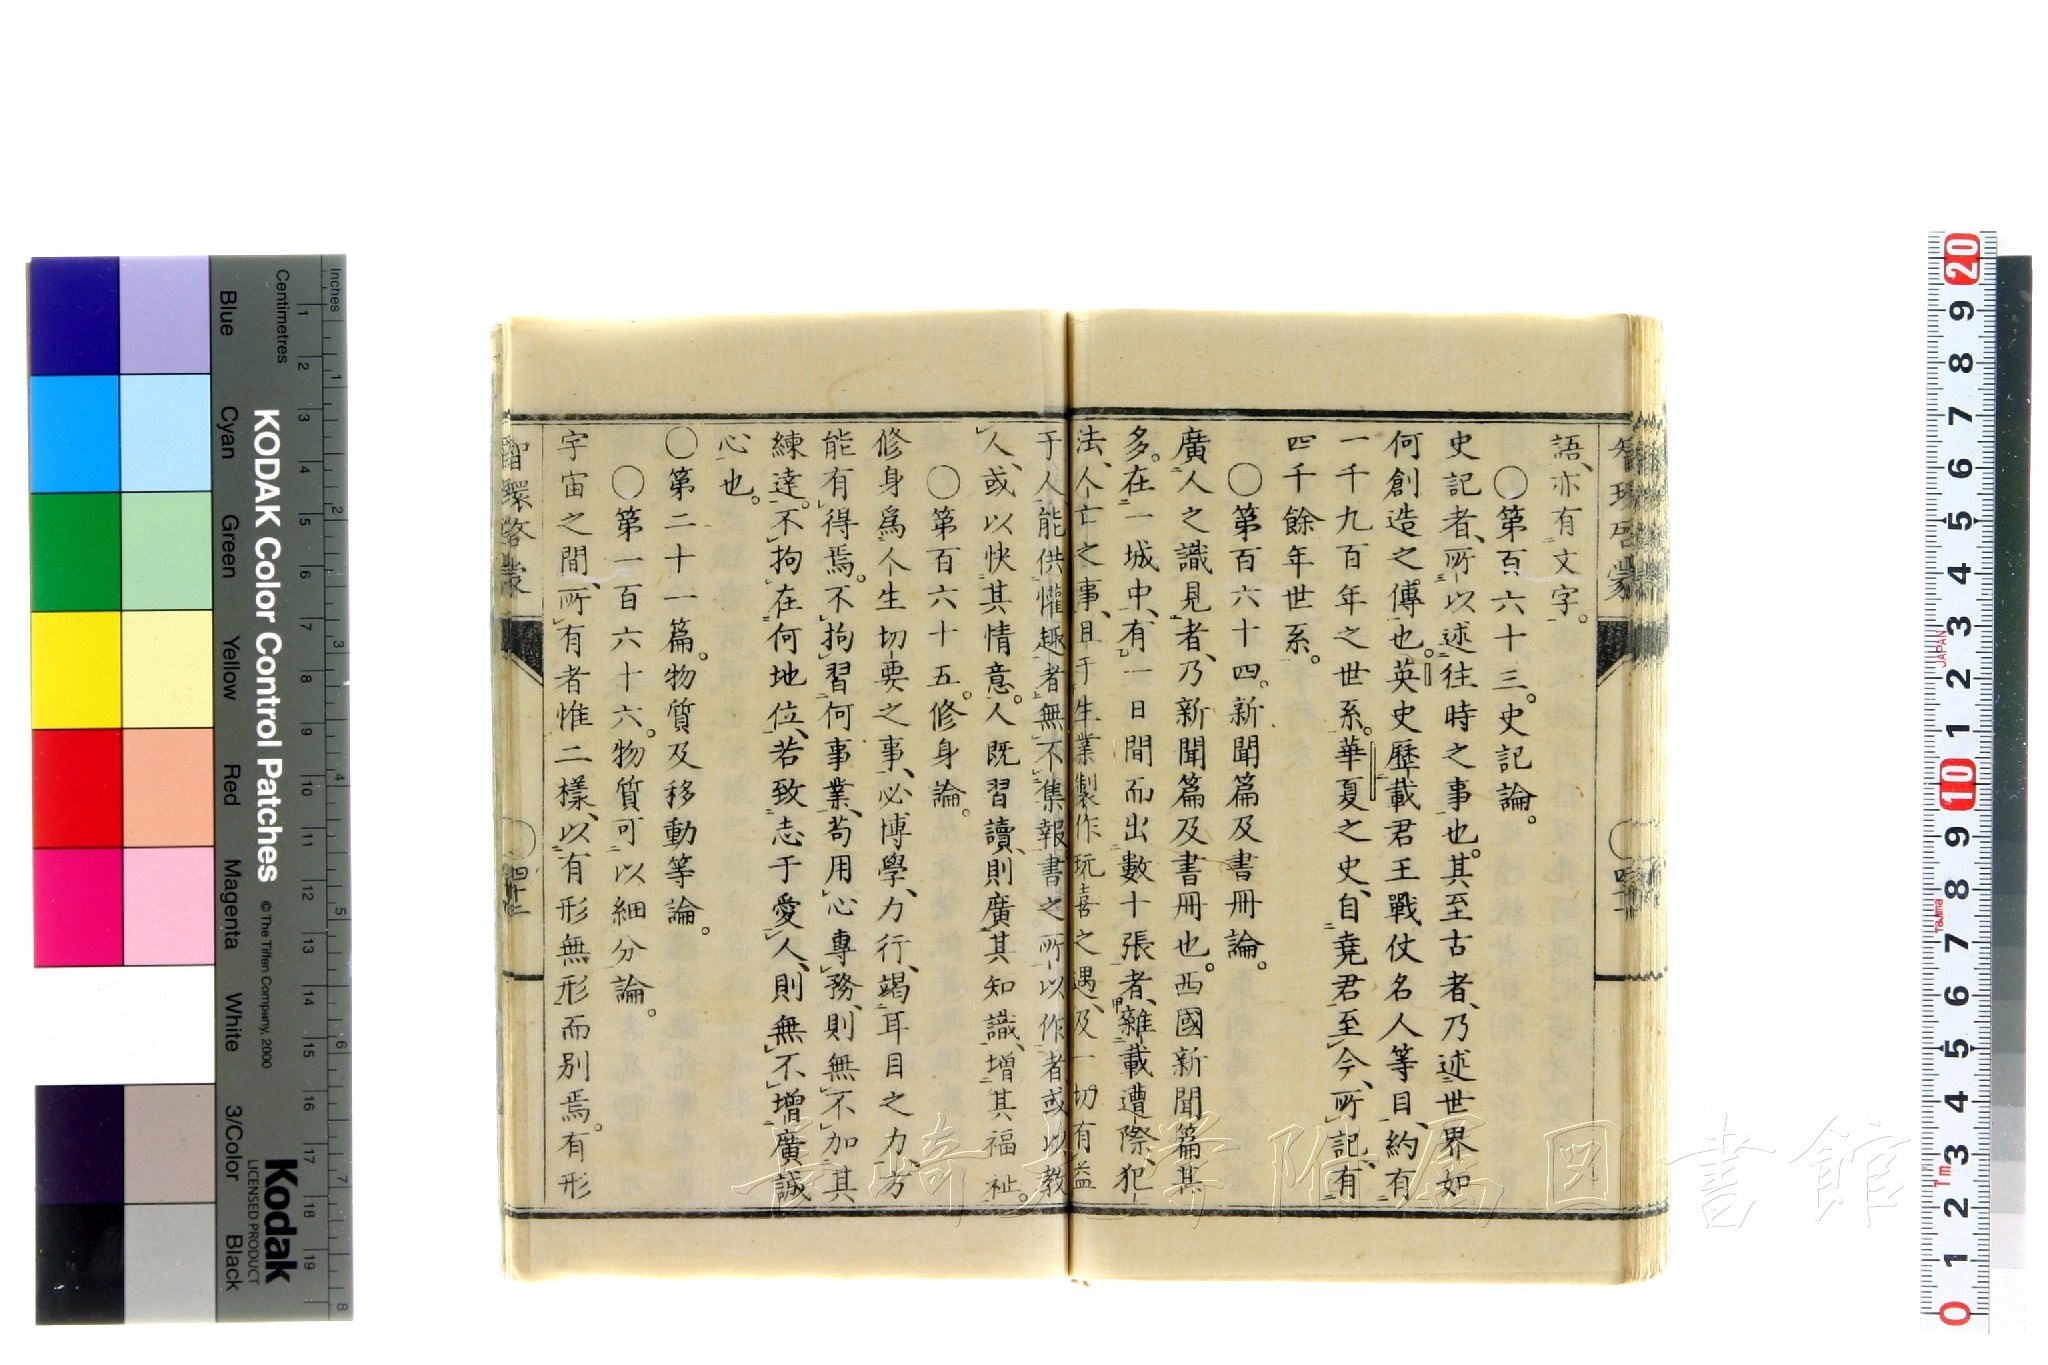 語、亦有文字。
○第百六十三。史記論。
史記者、所以述往時之事也。其至古者、乃述世界如
何創造之傳也。英史歷載君王戰仗名人等目、約有
一千九百年之世系。華夏之史、自堯君至今、所記、有
四千餘年世系。
○第百六十四。新聞篇及書冊論。
廣人之識見者、乃新聞篇及書冊也。西國新聞篇其
多。在一城中、有一日間而出數十張者、雜載遭際、犯
法、人亡之事、且于生業製作玩喜之遇、及一切有益
于人、能供懽趣者、無不集報書之所以作者、或以教
人、或以快其情意。人既習讀、則廣其知識、增其福祉。
○第百六十五。修身論。
修身爲人生切要之事、必博學、力行、竭耳目之力、方
能有得焉。不拘習何事業、苟用心專務、則無不加其
練達。不拘在何地位、若致志于愛人、則無不增廣誠
心也。
○第二十一篇。物質及移動等論。
○第一百六十六。物質可以細分論。
宇宙之間、所有者惟二樣、以有形無形而别焉。有形
智環啓蒙
○四十二
智環啓蒙
長崎大学附属図書館
KODAK Color Control Patches
© The Tiffen Company, 2000
Kodak
LICENSED PRODUCT
Blue
Cyan
Green
Yellow
Red
Magenta
White
3/Color
Black
Inches
1 2 3 4 5 6 7 8
Centimetres
1 2 3 4 5 6 7 8 9 10 11 12 13 14 15 16 17 18 19
20 9 8 7 6 5 4 3 2 1 10 9 8 7 6 5 4 3 2 1 0
JAPAN
Tajima
7m